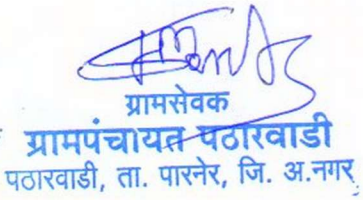 ग्रामसेवक
ग्रामपंचायत पठारवाडी
पठारवाडी, ता. पारनेर, जि. अ.नगर.